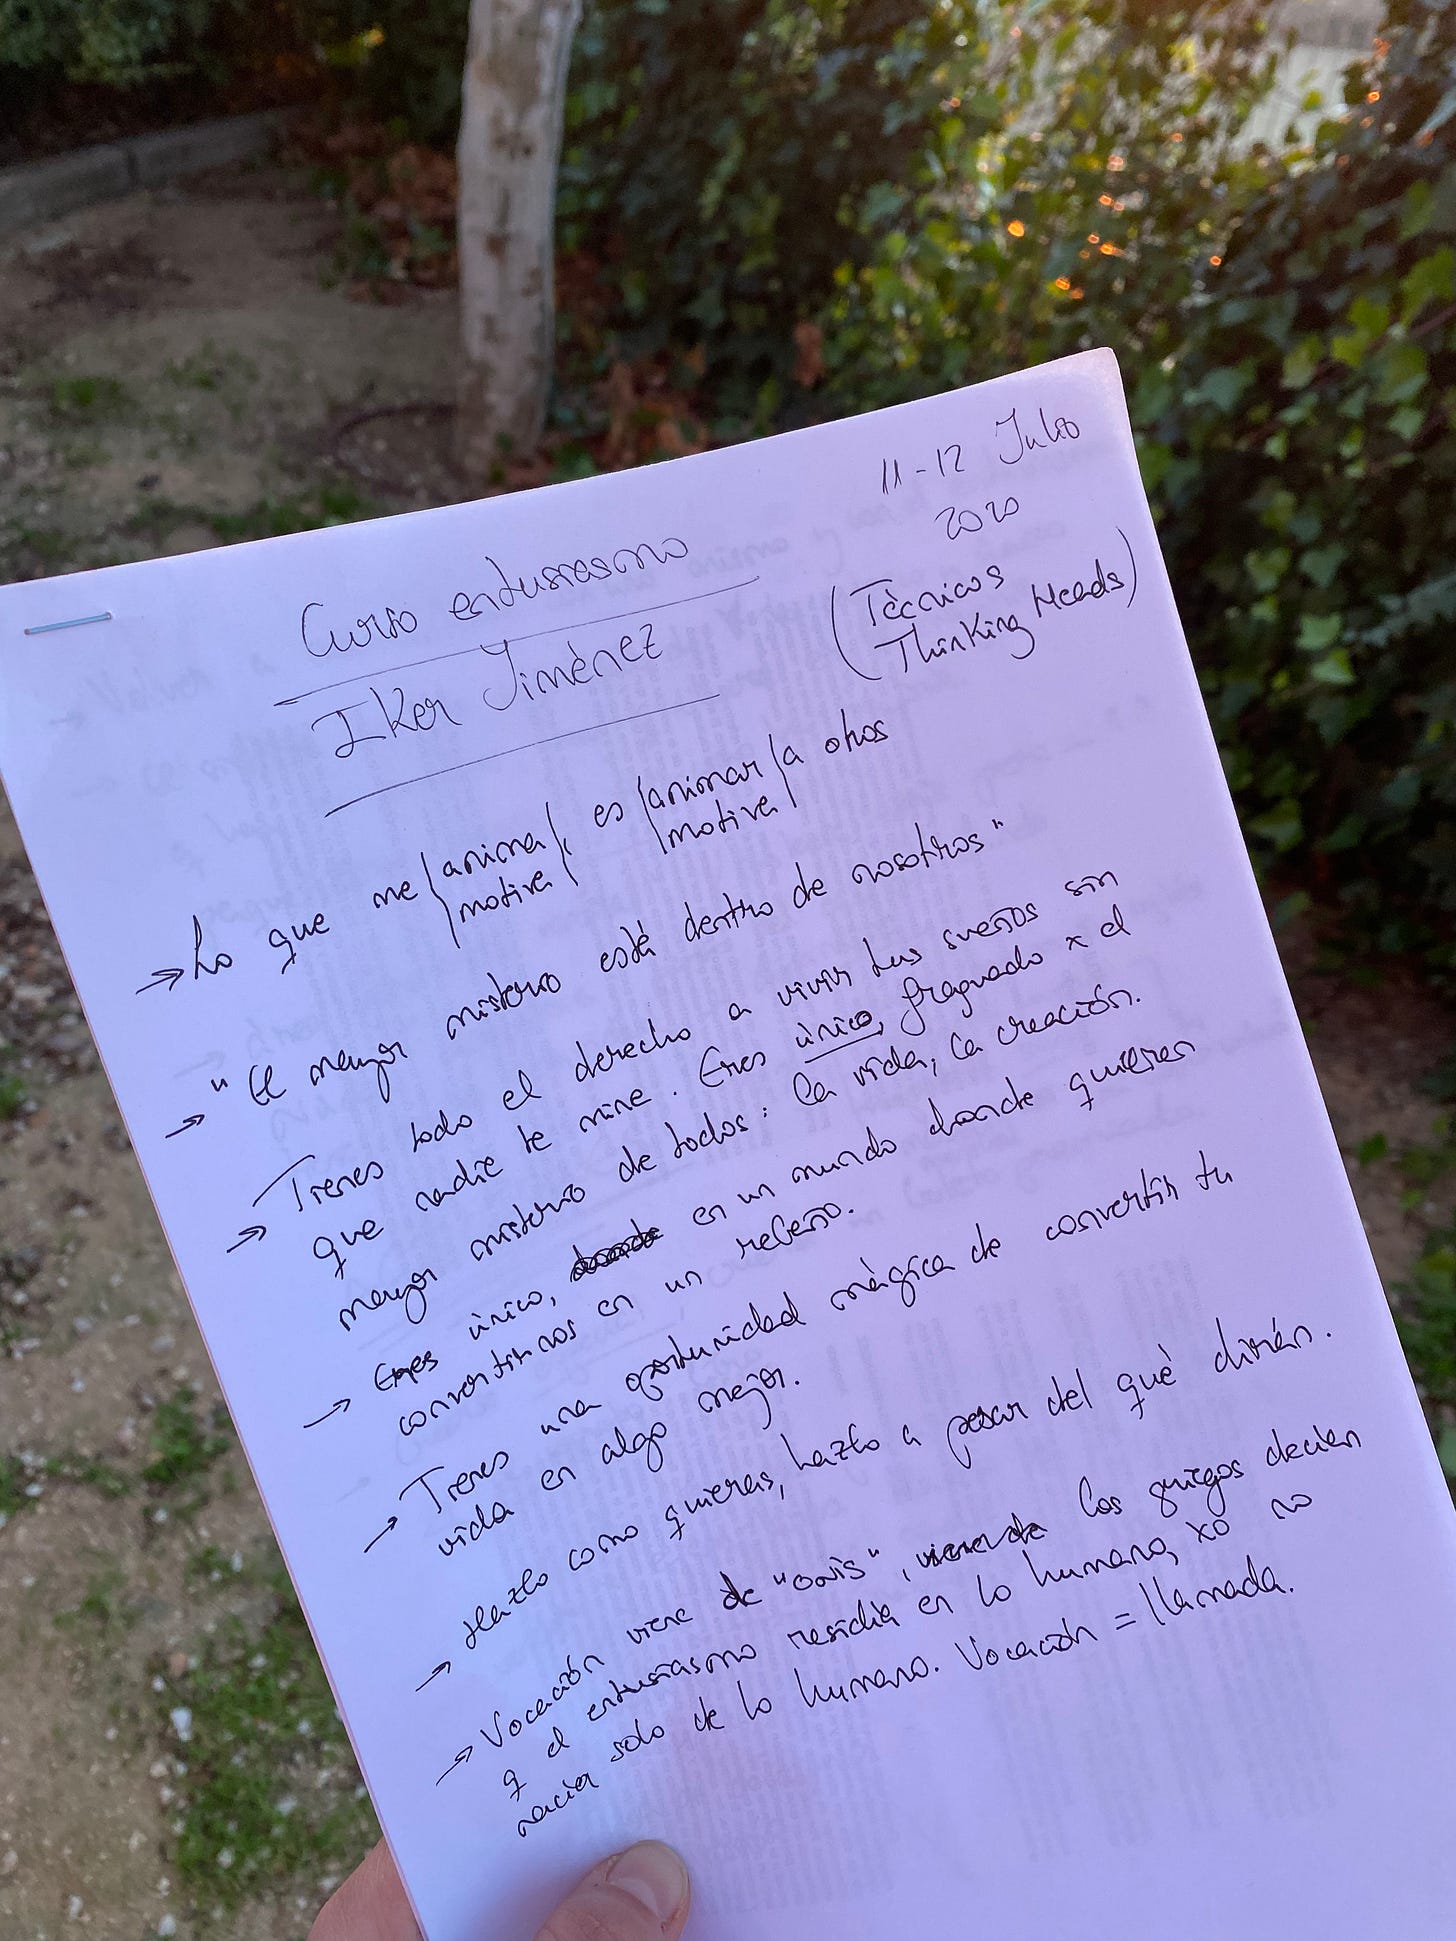 11-12 Julio
2020
Curso entusiasmo
(Técnicos
Thinking Heads)
Iker Jiménez
→ Lo que me (anima), es (animar) a otros
motiva motiva
→ "El mayor misterio está dentro de nosotros"
→ Tienes todo el derecho a vivir tus sueños sin
que nadie te mine. Eres único, fraguado x el
mayor misterio de todos: la vida, la creación.
→ Eres único, en un mundo donde quieren
convertirnos en un rebaño.
→ Tienes una oportunidad mágica de convertir tu
vida en algo mejor.
→ Hazlo como quieras, hazlo a pesar del qué dirán.
→ Vocación viene de , los griegos decían
q el entusiasmo residía en lo humano, xo no
nacía solo de lo humano. Vocación = llamada.